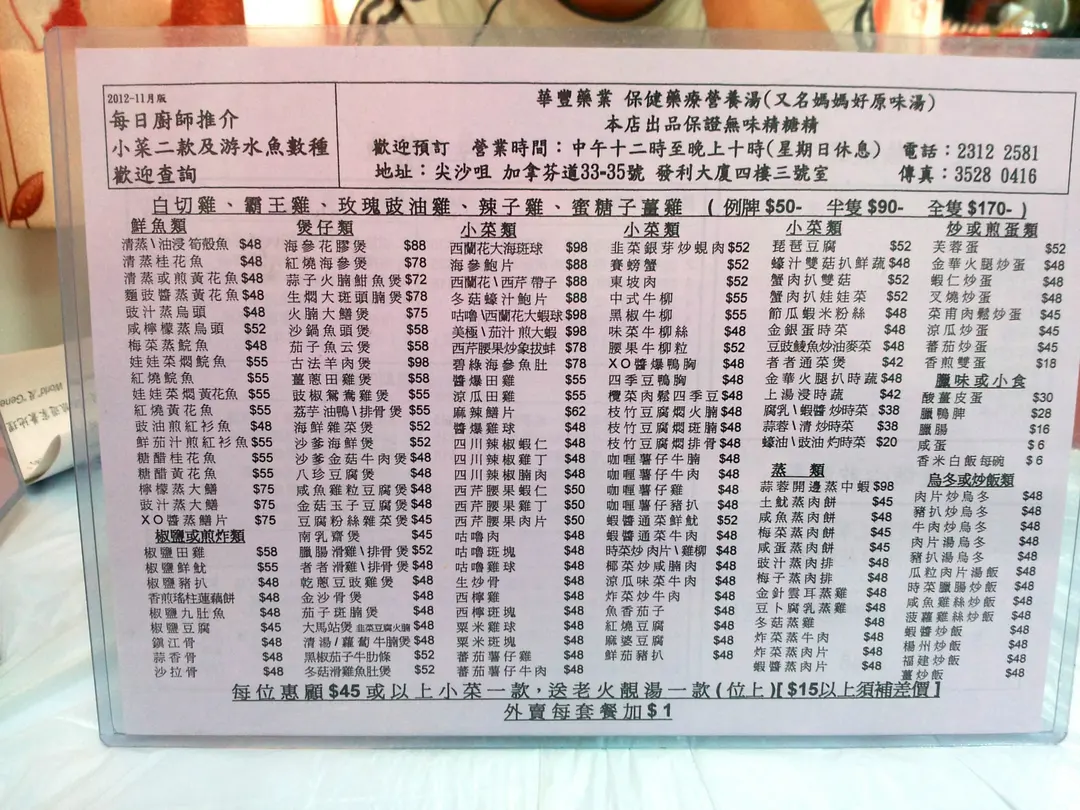 2012-11月版
每日廚師推介
小菜二款及游水魚數種
歡迎查詢
華豐藥業 保健藥療營養湯(又名媽媽好原味湯)
本店出品保證無味精糖精
歡迎預訂 營業時間：中午十二時至晚上十時(星期日休息) 電話：2312 2581
地址：尖沙咀 加拿芬道33-35號 發利大廈四樓三號室 傳真：3528 0416
白切雞、霸王雞、玫瑰豉油雞、辣子雞、蜜糖子薑雞 ( 例牌 $50- 半隻 $90- 全隻 $170- )
鮮魚類
清蒸\油浸筍殼魚 $48
清蒸桂花魚 $48
清蒸或煎黃花魚 $48
麵豉醬蒸黃花魚 $48
豉汁蒸烏頭 $48
咸檸檬蒸烏頭 $52
梅菜蒸鯇魚 $48
娃娃菜燜鯇魚 $55
紅燒鯇魚 $55
娃娃菜燜黃花魚 $55
紅燒黃花魚 $55
豉油煎紅衫魚 $48
鮮茄汁煎紅衫魚 $55
糖醋桂花魚 $55
糖醋黃花魚 $55
檸檬蒸大鱔 $75
豉汁蒸大鱔 $75
XO醬蒸鱔片 $75
椒鹽或煎炸類
椒鹽田雞 $58
椒鹽鮮魷 $55
椒鹽豬扒 $48
香煎瑤柱蓮藕餅 $48
椒鹽九肚魚 $48
椒鹽豆腐 $45
鎮江骨 $48
蒜香骨 $48
沙拉骨 $48
煲仔類
海參花膠煲 $88
紅燒海參煲 $78
蒜子火腩魽魚煲 $72
生燜大斑頭腩煲 $78
火腩大鱔煲 $75
沙鍋魚頭煲 $58
茄子魚云煲 $58
古法羊肉煲 $98
薑蔥田雞煲 $58
豉椒鴛鴦雞煲 $55
荔芋油鴨\排骨煲 $55
海鮮雜菜煲 $52
沙爹海鮮煲 $52
沙爹金菇牛肉煲 $48
八珍豆腐煲 $48
咸魚雞粒豆腐煲 $48
金菇玉子豆腐煲 $48
豆腐粉絲雜菜煲 $45
南乳齋煲 $45
臘腸滑雞\排骨煲 $52
者者滑雞\排骨煲 $48
乾蔥豆豉雞煲 $48
金沙骨煲 $48
茄子斑腩煲 $48
大馬站煲 韭菜豆腐火腩 $48
清湯\蘿蔔牛腩煲 $48
黑椒茄子牛肋條 $52
冬菇滑雞魚肚煲 $52
小菜類
西蘭花大海斑球 $98
海參鮑片 $88
西蘭花\西芹帶子 $88
冬菇蠔汁鮑片 $88
咕嚕\西蘭花大蝦球 $98
美極\茄汁煎大蝦 $98
西芹腰果炒象拔蚌 $78
碧綠海參魚肚 $78
醬爆田雞 $55
涼瓜田雞 $55
麻辣鱔片 $62
醬爆雞球 $48
四川辣椒蝦仁 $48
四川辣椒雞丁 $48
四川辣椒腩肉 $48
西芹腰果蝦仁 $50
西芹腰果雞丁 $50
西芹腰果肉片 $50
咕嚕肉 $48
咕嚕斑塊 $48
咕嚕雞球 $48
生炒骨 $48
西檸雞 $48
西檸斑塊 $48
粟米雞球 $48
粟米斑塊 $48
蕃茄薯仔雞 $48
蕃茄薯仔牛肉 $48
小菜類
韭菜銀芽炒蜆肉 $52
賽螃蟹 $52
東坡肉 $52
中式牛柳 $55
黑椒牛柳 $55
味菜牛柳絲 $48
腰果牛柳粒 $52
XO醬爆鴨胸 $48
四季豆鴨胸 $48
欖菜肉鬆四季豆 $48
枝竹豆腐燜火腩 $48
枝竹豆腐燜斑腩 $48
枝竹豆腐燜排骨 $48
咖喱薯仔牛腩 $48
咖喱薯仔斑腩 $48
咖喱薯仔雞 $48
咖喱薯仔豬扒 $48
蝦醬通菜鮮魷 $52
蝦醬通菜牛肉 $48
時菜炒肉片\雞柳 $48
椰菜炒咸腩肉 $48
涼瓜味菜牛肉 $48
炸菜炒牛肉 $48
魚香茄子 $48
紅燒豆腐 $48
麻婆豆腐 $48
鮮茄豬扒 $48
小菜類
琵琶豆腐 $52
蠔汁雙菇扒鮮蔬 $48
蟹肉扒雙菇 $52
蟹肉扒娃娃菜 $52
節瓜蝦米粉絲 $48
金銀蛋時菜 $48
豆豉鯪魚炒油麥菜 $48
者者通菜煲 $42
金華火腿扒時蔬 $48
上湯浸時蔬 $42
腐乳\蝦醬炒時菜 $38
蒜蓉\清炒時菜 $38
蠔油\豉油灼時菜 $20
蒸 類
蒜蓉開邊蒸中蝦 $98
土魷蒸肉餅 $45
咸魚蒸肉餅 $48
梅菜蒸肉餅 $45
咸蛋蒸肉餅 $48
豉汁蒸肉排 $48
梅子蒸肉排 $48
金針雲耳蒸雞 $48
豆卜腐乳蒸雞 $48
冬菇蒸雞 $48
炸菜蒸牛肉 $48
炸菜蒸肉片 $48
蝦醬蒸肉片 $48
炒或煎蛋類
芙蓉蛋 $52
金華火腿炒蛋 $48
蝦仁炒蛋 $48
叉燒炒蛋 $48
菜甫肉鬆炒蛋 $45
涼瓜炒蛋 $45
蕃茄炒蛋 $45
香煎雙蛋 $18
臘味或小食
酸薑皮蛋 $30
臘鴨脾 $28
臘腸 $16
咸蛋 $ 6
香米白飯每碗 $ 6
烏冬或炒飯類
肉片炒烏冬 $48
豬扒炒烏冬 $48
牛肉炒烏冬 $48
肉片湯烏冬 $48
豬扒湯烏冬 $48
瓜粒肉片湯飯 $48
時菜臘腸炒飯 $48
咸魚雞絲炒飯 $48
菠蘿雞絲炒飯 $48
蝦醬炒飯 $48
楊州炒飯 $48
福建炒飯 $48
薑炒飯 $48
每位惠顧$45或以上小菜一款，送老火靚湯一款(位上)[ $15以上須補差價 ]
外賣每套餐加$1